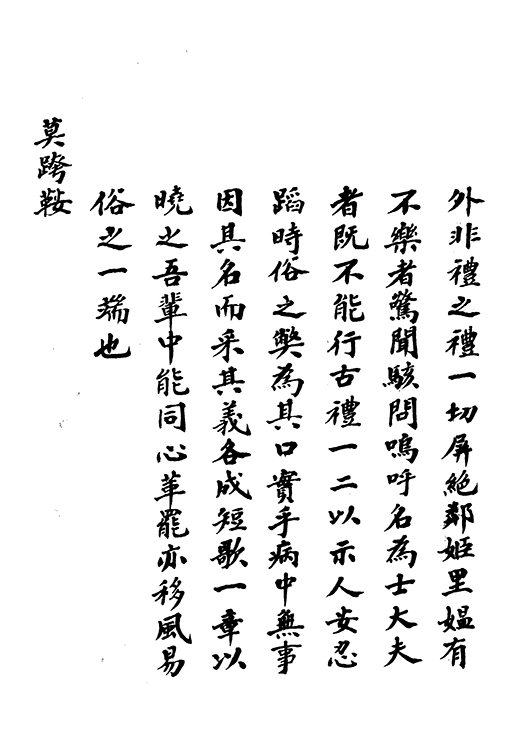 外非禮之禮一切屏絶鄰姬里媪有
不樂者驚聞駭問嗚呼名為士大夫
者既不能行古禮一二以示人安忍
蹈時俗之弊為其口實乎病中無事
因其名而采其義各成短歌一章以
曉之吾輩中能同心革罷亦移風易
俗之一端也
莫跨鞍